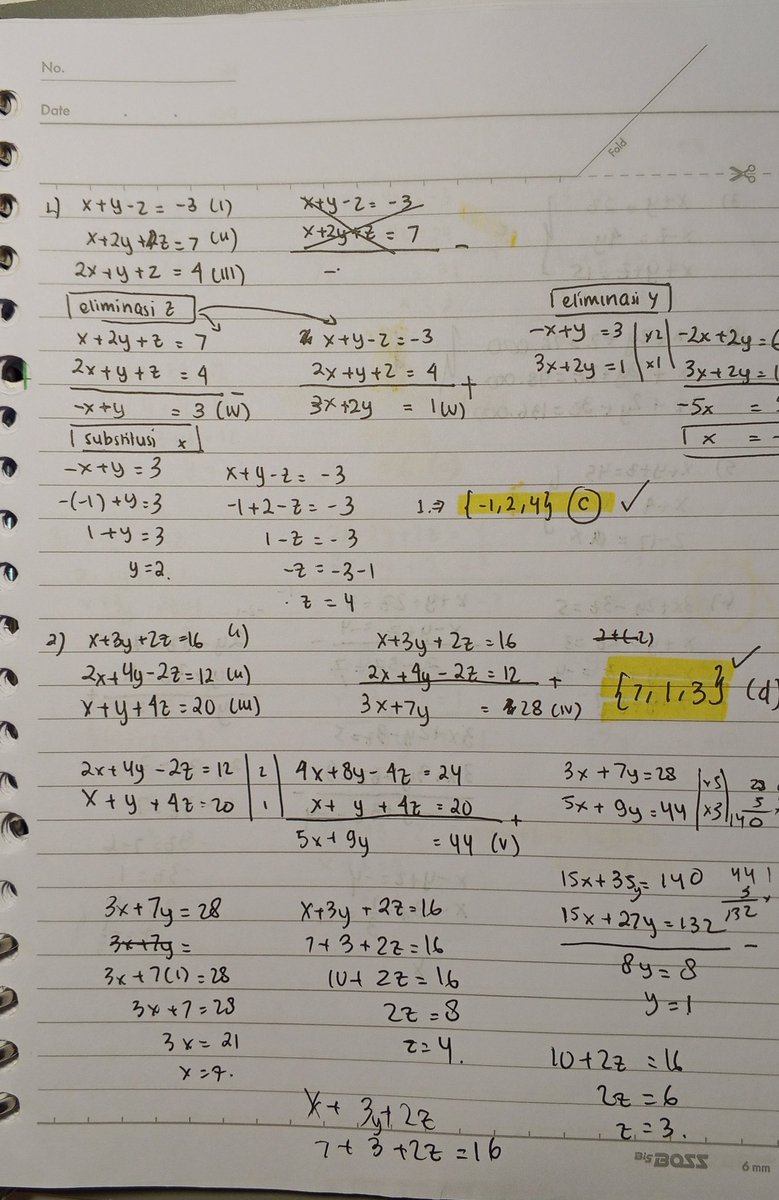 No.
Date
Fold
1) x+y-z = -3 (I)
x+2y+z = 7 (II)
2x+y+z = 4 (III)
x+y-z = -3
x+2y+z = 7 -
eliminasi z
x+2y+z = 7
2x+y+z = 4 -
-x+y = 3 (IV)
x+y-z = -3
2x+y+z = 4 +
3x+2y = 1 (V)
eliminasi y
-x+y = 3 | x2 | -2x+2y =
3x+2y = 1 | x1 | 3x+2y = 1
-5x =
x = -
substitusi x
-x+y = 3
-(-1)+y = 3
1+y = 3
y = 2.
x+y-z = -3
-1+2-z = -3
1-z = -3
-z = -3-1
z = 4
1. ⇒ {-1, 2, 4} (C) ✓
2) x+3y+2z = 16 (I)
2x+4y-2z = 12 (II)
x+y+4z = 20 (III)
x+3y+2z = 16
2x+4y-2z = 12 +
3x+7y = 28 (IV)
2+(-2)
{7, 1, 3} (d) ✓
2x+4y-2z = 12 | 2 | 4x+8y-4z = 24
x+y+4z = 20 | 1 | x+y+4z = 20 +
5x+9y = 44 (V)
3x+7y = 28 | x5 |
5x+9y = 44 | x3 |
28
5
140
15x+35y = 140
15x+27y = 132 -
8y = 8
y = 1
44
3 x
132
3x+7y = 28
3x+7y =
3x+7(1) = 28
3x+7 = 28
3x = 21
x = 7.
x+3y+2z = 16
7+3+2z = 16
10+2z = 16
2z = 8
z = 4.
10+2z = 16
2z = 6
z = 3.
x+3y+2z
7+3+2z = 16
BIG BOSS 6 mm